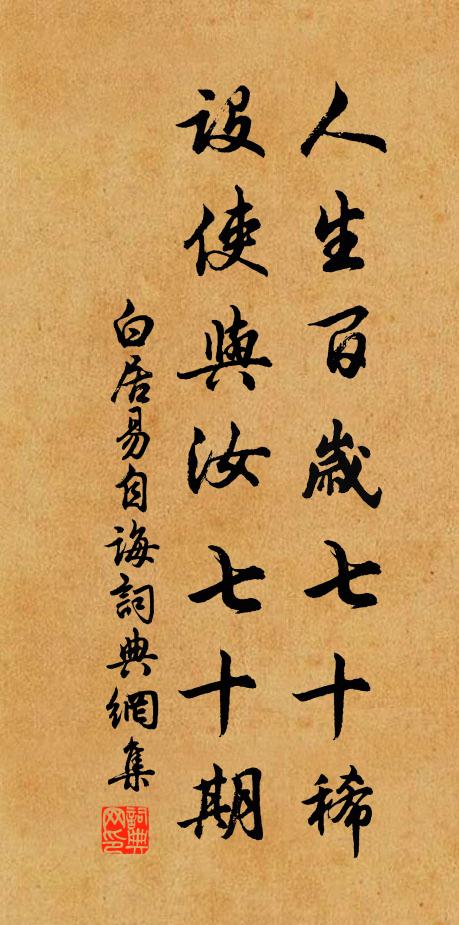 人生百歲七十稀
設使與汝七十期
白居易自誨詞典網集
詞典网印